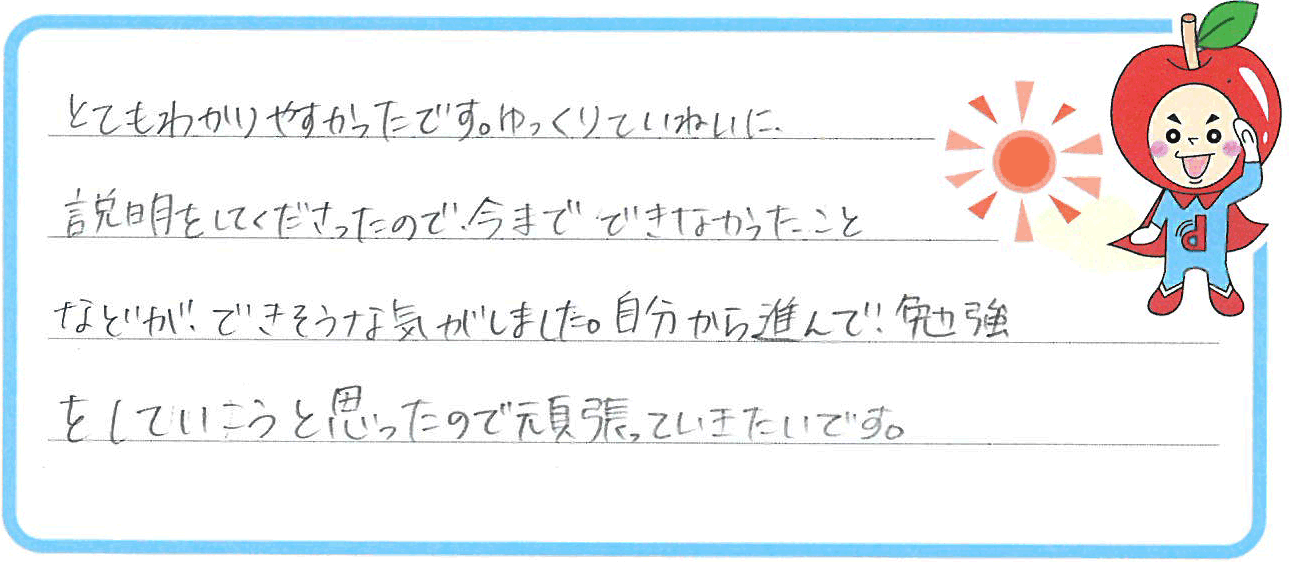 とてもわかりやすかったです。ゆっくりていねいに、
説明をしてくださったので、今までできなかったこと
などが、できそうな気がしました。自分から進んで、勉強
をしていこうと思ったので頑張っていきたいです。